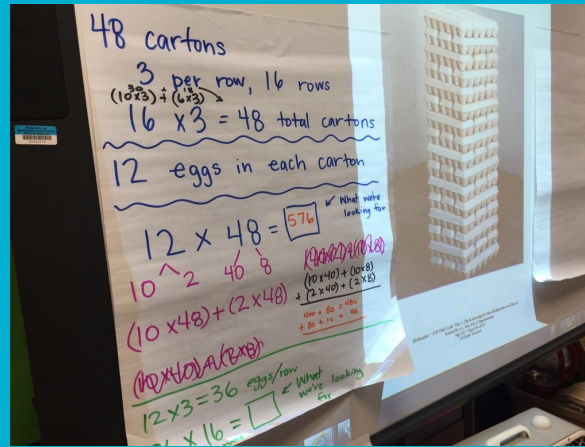 48 cartons
3 per row, 16 rows
30 18
(10x3) + (6x3)
16 x 3 = 48 total cartons
12 eggs in each carton
12 x 48 = 576
What we're
looking for
10 2 40 8
(10 x 40) + (10 x 8)
+ (2 x 40) + (2 x 8)
(10 x 48) + (2 x 48)
400 + 80 = 480
+ 80 + 16 = 96
12 x 3 = 36 eggs/row
What
we're looking
for
x 16 =